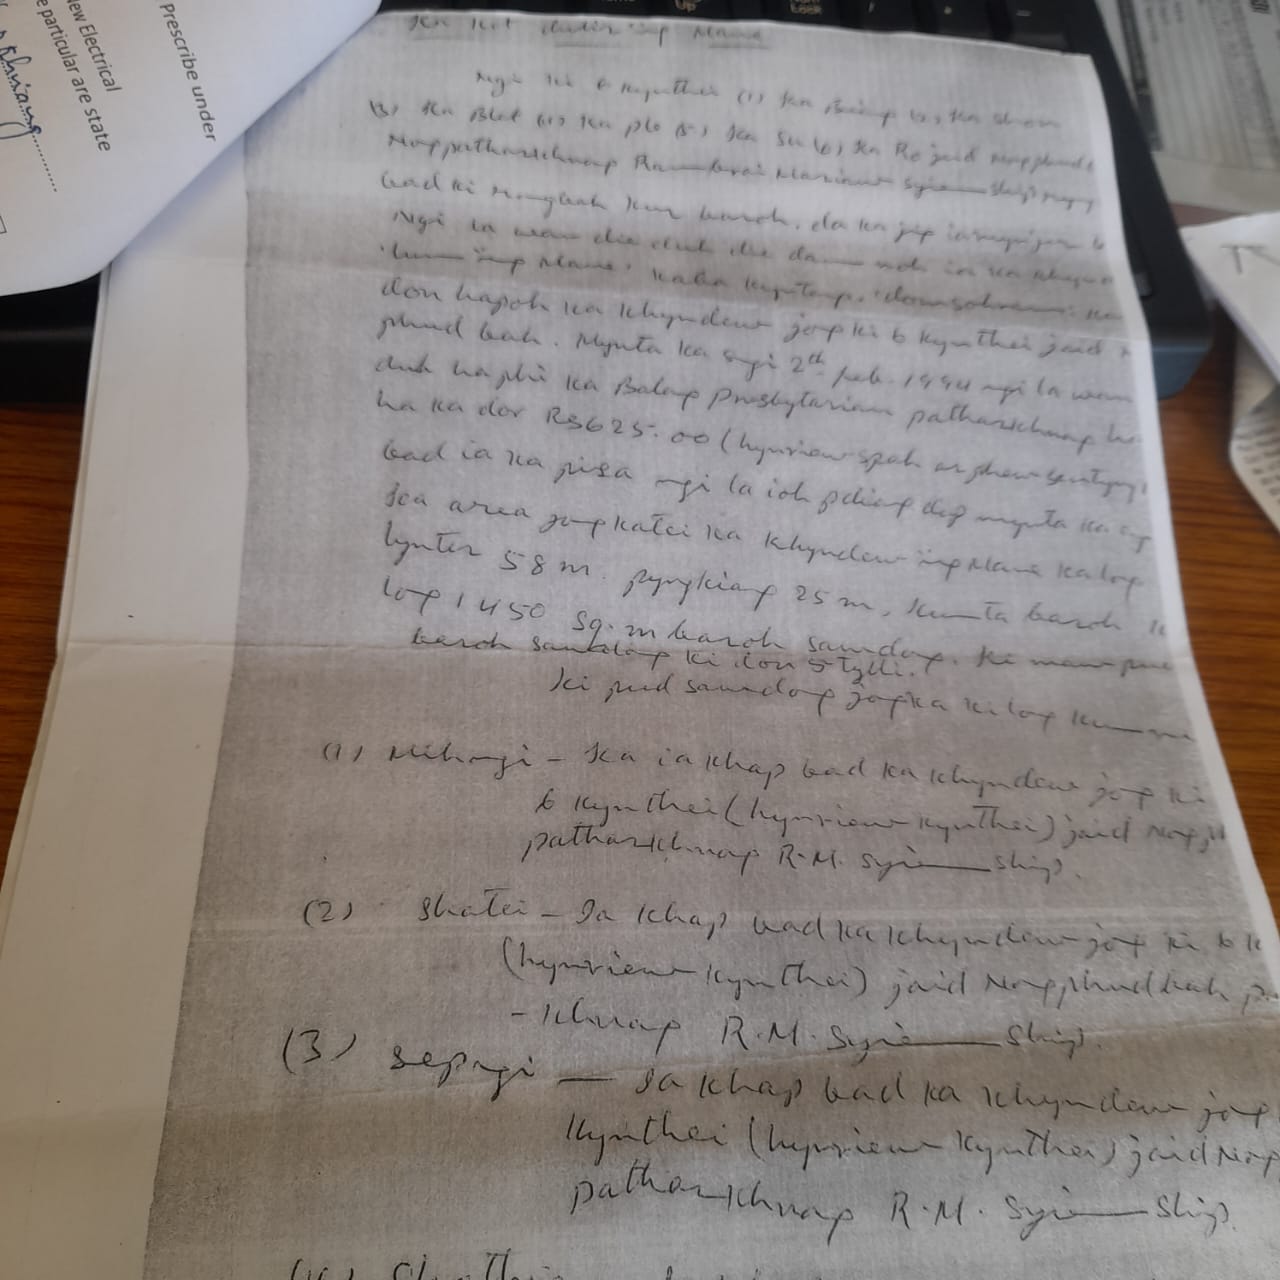 Prescribe under
New Electrical
e particular are state
Ka Kot dulir ïing Mane
Ngi ki 6 kynthei (1) Ka (2) Ka
(3) Ka Blot (4) Ka plo (5) Ka Su (6) Ka Ro jaid Nongphud
Nongpatharkhmap Rambrai Syiemship
bad ki rangbah kur baroh, da ka jip
Ngi la wan die duh die dam noh ia ka khyndew
ïing Mane, kaba kyntang,
don hapoh ka khyndew jong ki 6 kynthei jaid
phud bah. Mynta ka sngi 2th Feb. 1994 ngi la wan
duh ha phi ka Balang Presbytarian patharkhmap
ha ka dor Rs625.00 (hynriew spah arphew
bad ia ka pisa ngi la ioh pdiang dep mynta ka
Ka area jong katei ka khyndew ïing Mane ka long
lynter 58 m. pyngkiang 25 m, kumta baroh
long 1450 sq.m baroh sawdong. Ki maw pud
baroh sawdong ki don 5 tylli.
Ki pud sawdong jong ka ki long kum
(1) Mihngi - Ka ia khap bad ka khyndew jong ki
6 kynthei (hynriew kynthei) jaid
patharkhmap R.M. Syiemship.
(2) Shatei - Ia khap bad ka khyndew jong ki 6 k
(hynriew kynthei) jaid Nongphudbah
-khmap R.M. Syiemship.
(3) Sepngi — Ia khap bad ka khyndew jong
kynthei (hynriew kynthei) jaid Nong
patharkhmap R.M. Syiemship.